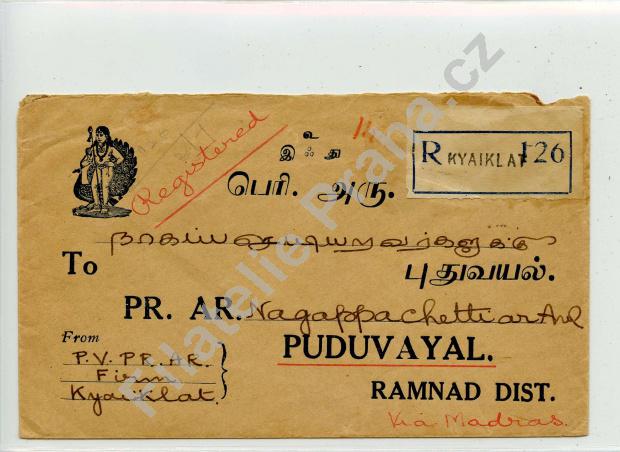 Registered
உ
இ ஃ து
R KYAIKLAT 126
பெரி. அரு.
நாகப்பசெட்டியாரவர்களுக்கு
To
புதுவயல்.
PR. AR. Nagappachettiar And
From
P.V. PR. AR.
Firm
Kyaiklat.
PUDUVAYAL.
RAMNAD DIST.
Via Madras.
Filatelie Praha.cz